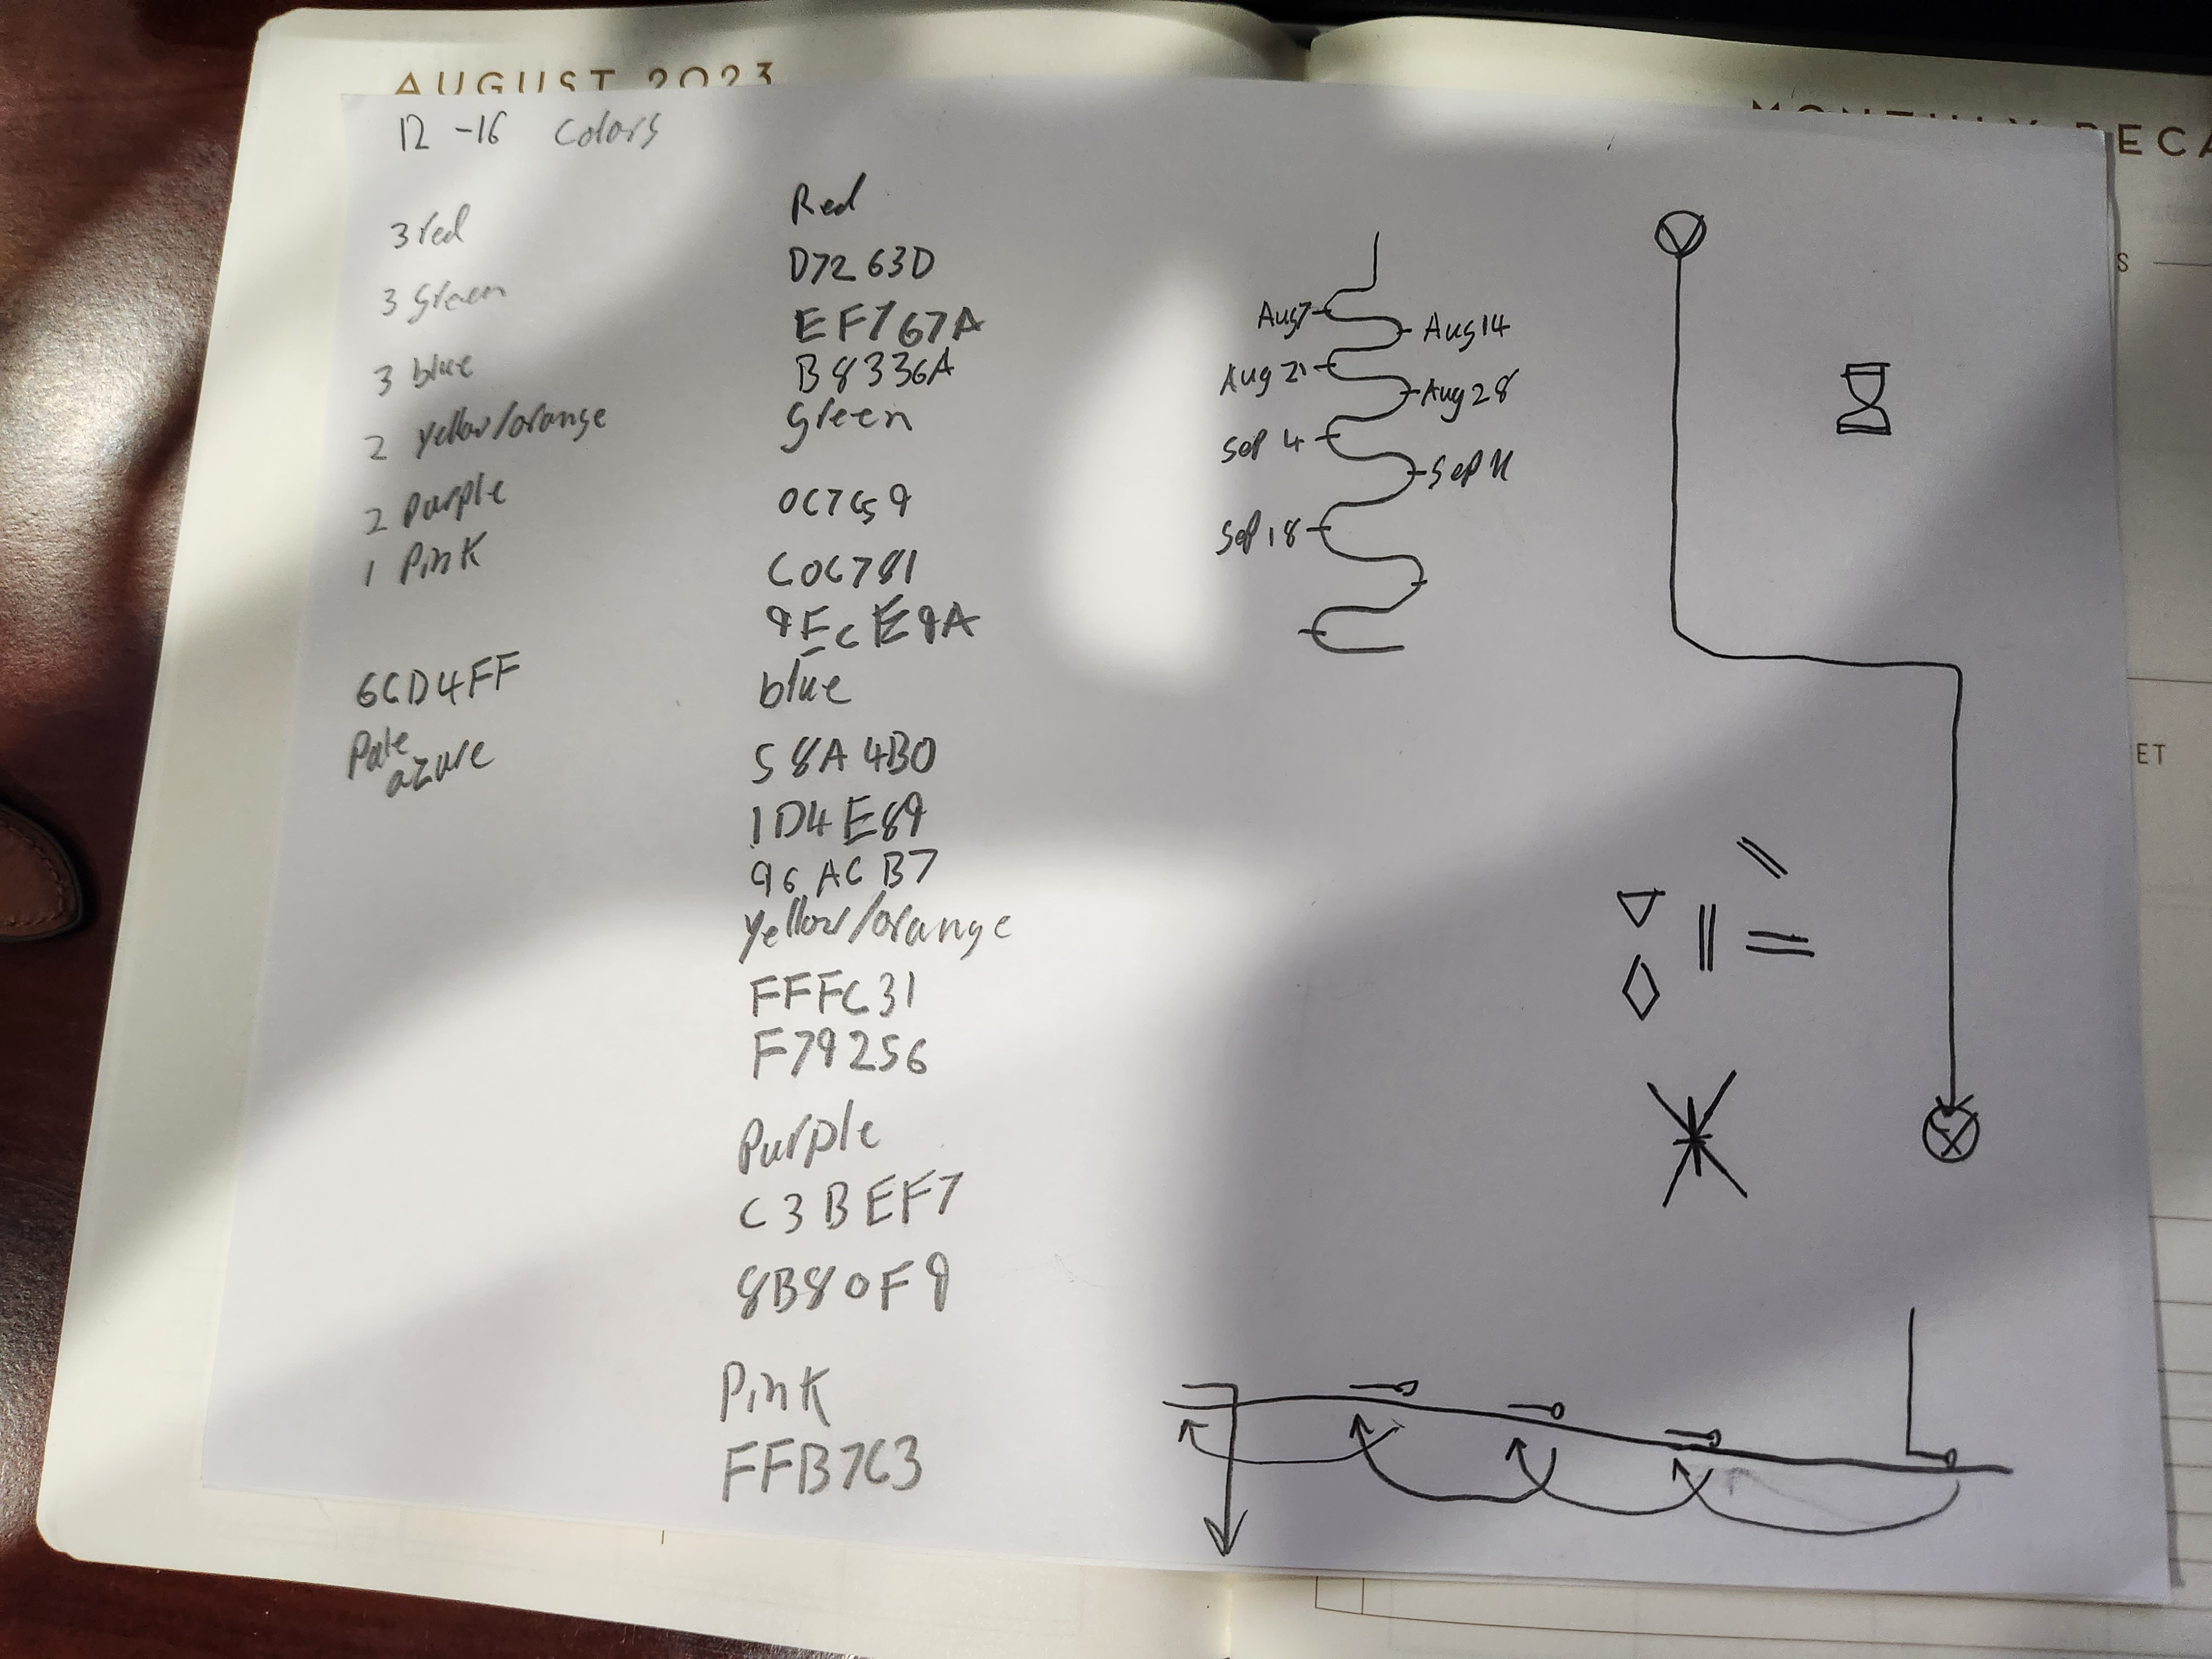 AUGUST 2023
12-16 Colors
3 red
3 green
3 blue
2 yellow/orange
2 purple
1 pink
6CD4FF
pale
azure
Red
D7263D
EF767A
B9336A
Green
0C7C59
C0C781
9ECE9A
blue
58A4B0
1D4E89
96ACB7
yellow/orange
FFFC31
F79256
purple
C3BEF7
8B80F9
Pink
FFB7C3
Aug 7
Aug 14
Aug 21
Aug 28
Sep 4
Sep 11
Sep 18
ET
S